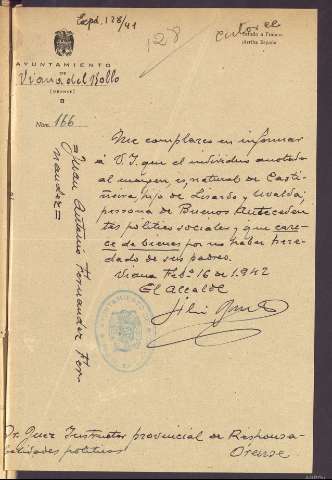 Expd. 128/41
128
Saludo a Franco
¡Arriba España!
AYUNTAMIENTO
DE
Viana del Bollo
(ORENSE)
Núm. 166
=Juan Antonio Fernandez Fer-
nandez=
Me complazco en informar
á V.I. que el individuo anotado
al margen, es natural de Casti-
ñeira, hijo de Lisardo y Ubalda;
persona de Buenos Anteceden
tes politico sociales y que care-
ce de bienes por no haber here-
dado de sus padres.
Viana Febº 16 de 1.942
El Alcalde
Sr. Juez Instructor provincial de Responsa-
bilidades politicas
Orense